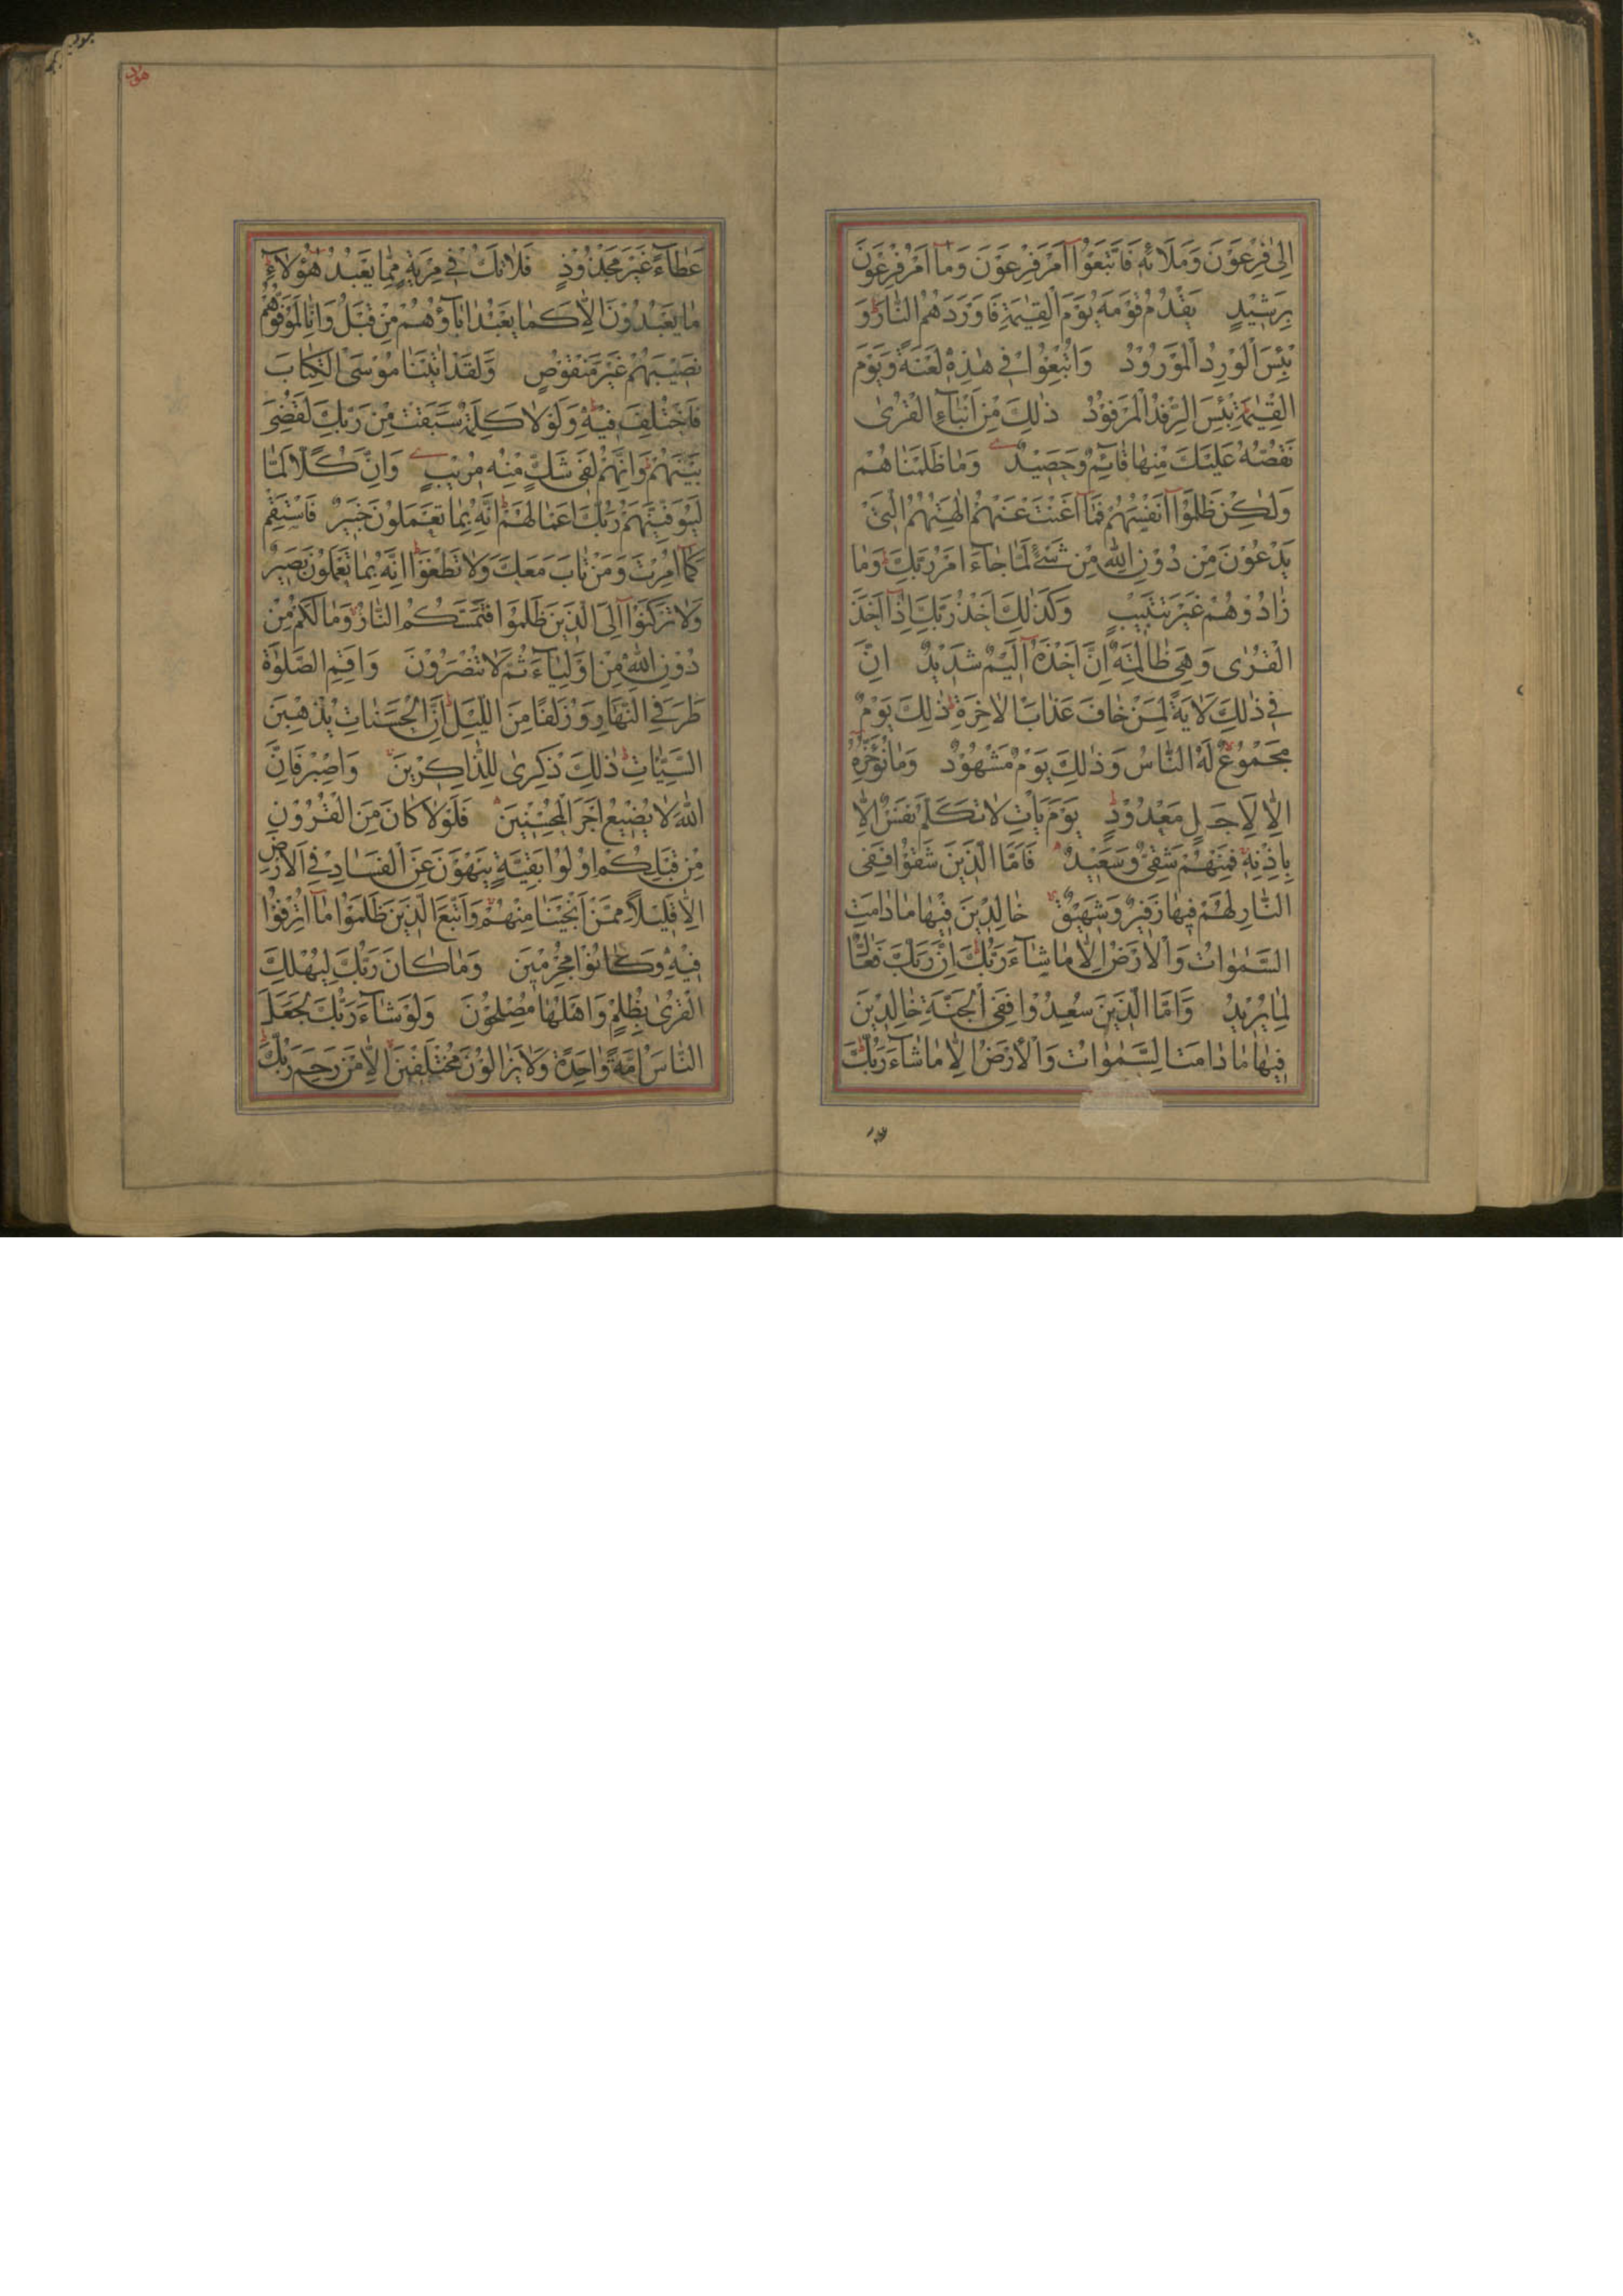 اِلىٰ فِرْعَوْنَ وَمَلَائِهٖ فَاتَّبَعُوْا اَمْرَ فِرْعَوْنَ وَمَا اَمْرُ فِرْعَوْنَ
بِرَشِيْدٍ يَقْدُمُ قَوْمَهُ يَوْمَ الْقِيٰمَةِ فَاَوْرَدَهُمُ النَّارَ وَ
بِئْسَ الْوِرْدُ الْمَوْرُوْدُ وَاُتْبِعُوْا فِي هٰذِهٖ لَعْنَةً وَيَوْمَ
الْقِيٰمَةِ بِئْسَ الرِّفْدُ الْمَرْفُوْدُ ذٰلِكَ مِنْ اَنْبَآءِ الْقُرٰى
نَقُصُّهُ عَلَيْكَ مِنْهَا قَآئِمٌ وَحَصِيْدٌ وَمَا ظَلَمْنَاهُمْ
وَلٰكِنْ ظَلَمُوْا اَنْفُسَهُمْ فَمَا اَغْنَتْ عَنْهُمْ اٰلِهَتُهُمُ الَّتِيْ
يَدْعُوْنَ مِنْ دُوْنِ اللّٰهِ مِنْ شَيْءٍ لَمَّا جَآءَ اَمْرُ رَبِّكَ وَمَا
زَادُوْهُمْ غَيْرَ تَتْبِيْبٍ وَكَذٰلِكَ اَخْذُ رَبِّكَ اِذَا اَخَذَ
الْقُرٰى وَهِيَ ظَالِمَةٌ اِنَّ اَخْذَهُ اَلِيْمٌ شَدِيْدٌ اِنَّ
فِي ذٰلِكَ لَاٰيَةً لِمَنْ خَافَ عَذَابَ الْاٰخِرَةِ ذٰلِكَ يَوْمٌ
مَجْمُوْعٌ لَهُ النَّاسُ وَذٰلِكَ يَوْمٌ مَشْهُوْدٌ وَمَا نُؤَخِّرُهُ
اِلَّا لِاَجَلٍ مَعْدُوْدٍ يَوْمَ يَاْتِ لَا تَكَلَّمُ نَفْسٌ اِلَّا
بِاِذْنِهٖ فَمِنْهُمْ شَقِيٌّ وَسَعِيْدٌ فَاَمَّا الَّذِيْنَ شَقُوْا فَفِي
النَّارِ لَهُمْ فِيْهَا زَفِيْرٌ وَشَهِيْقٌ خَالِدِيْنَ فِيْهَا مَا دَامَتِ
السَّمٰوَاتُ وَالْاَرْضُ اِلَّا مَا شَآءَ رَبُّكَ اِنَّ رَبَّكَ فَعَّالٌ
لِمَا يُرِيْدُ وَاَمَّا الَّذِيْنَ سُعِدُوْا فَفِي الْجَنَّةِ خَالِدِيْنَ
فِيْهَا مَا دَامَتِ السَّمٰوَاتُ وَالْاَرْضُ اِلَّا مَا شَآءَ رَبُّكَ
هود
عَطَآءً غَيْرَ مَجْذُوْذٍ فَلَا تَكُ فِي مِرْيَةٍ مِمَّا يَعْبُدُ هٰؤُلَآءِ
مَا يَعْبُدُوْنَ اِلَّا كَمَا يَعْبُدُ اٰبَآؤُهُمْ مِنْ قَبْلُ وَاِنَّا لَمُوَفُّوْهُمْ
نَصِيْبَهُمْ غَيْرَ مَنْقُوْصٍ وَلَقَدْ اٰتَيْنَا مُوْسَى الْكِتَابَ
فَاخْتُلِفَ فِيْهِ وَلَوْلَا كَلِمَةٌ سَبَقَتْ مِنْ رَبِّكَ لَقُضِيَ
بَيْنَهُمْ وَاِنَّهُمْ لَفِي شَكٍّ مِنْهُ مُرِيْبٍ وَاِنَّ كُلًّا لَمَّا
لَيُوَفِّيَنَّهُمْ رَبُّكَ اَعْمَالَهُمْ اِنَّهُ بِمَا يَعْمَلُوْنَ خَبِيْرٌ فَاسْتَقِمْ
كَمَا اُمِرْتَ وَمَنْ تَابَ مَعَكَ وَلَا تَطْغَوْا اِنَّهُ بِمَا تَعْمَلُوْنَ بَصِيْرٌ
وَلَا تَرْكَنُوْا اِلَى الَّذِيْنَ ظَلَمُوْا فَتَمَسَّكُمُ النَّارُ وَمَا لَكُمْ مِنْ
دُوْنِ اللّٰهِ مِنْ اَوْلِيَآءَ ثُمَّ لَا تُنْصَرُوْنَ وَاَقِمِ الصَّلٰوةَ
طَرَفَيِ النَّهَارِ وَزُلَفًا مِنَ اللَّيْلِ اِنَّ الْحَسَنَاتِ يُذْهِبْنَ
السَّيِّئَاتِ ذٰلِكَ ذِكْرٰى لِلذَّاكِرِيْنَ وَاصْبِرْ فَاِنَّ
اللّٰهَ لَا يُضِيْعُ اَجْرَ الْمُحْسِنِيْنَ فَلَوْلَا كَانَ مِنَ الْقُرُوْنِ
مِنْ قَبْلِكُمْ اُولُوْا بَقِيَّةٍ يَنْهَوْنَ عَنِ الْفَسَادِ فِي الْاَرْضِ
اِلَّا قَلِيْلًا مِمَّنْ اَنْجَيْنَا مِنْهُمْ وَاتَّبَعَ الَّذِيْنَ ظَلَمُوْا مَا اُتْرِفُوْا
فِيْهِ وَكَانُوْا مُجْرِمِيْنَ وَمَا كَانَ رَبُّكَ لِيُهْلِكَ
الْقُرٰى بِظُلْمٍ وَاَهْلُهَا مُصْلِحُوْنَ وَلَوْ شَآءَ رَبُّكَ لَجَعَلَ
النَّاسَ اُمَّةً وَاحِدَةً وَلَا يَزَالُوْنَ مُخْتَلِفِيْنَ اِلَّا مَنْ رَحِمَ رَبُّكَ